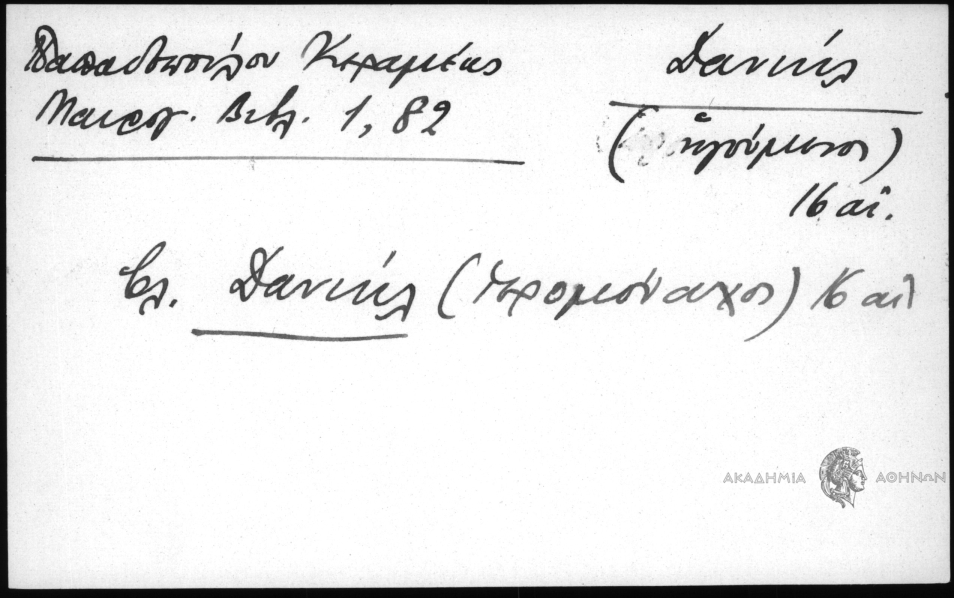 Παπαδοπούλου Κεραμέως
Μαυρογ. Βιβλ. 1, 82
Δανιήλ
(ἡγούμενος)
16 αἰ.
βλ. Δανιήλ (ἱερομόναχος) 16 αἰ
ΑΚΑΔΗΜΙΑ ΑΘΗΝΩΝ